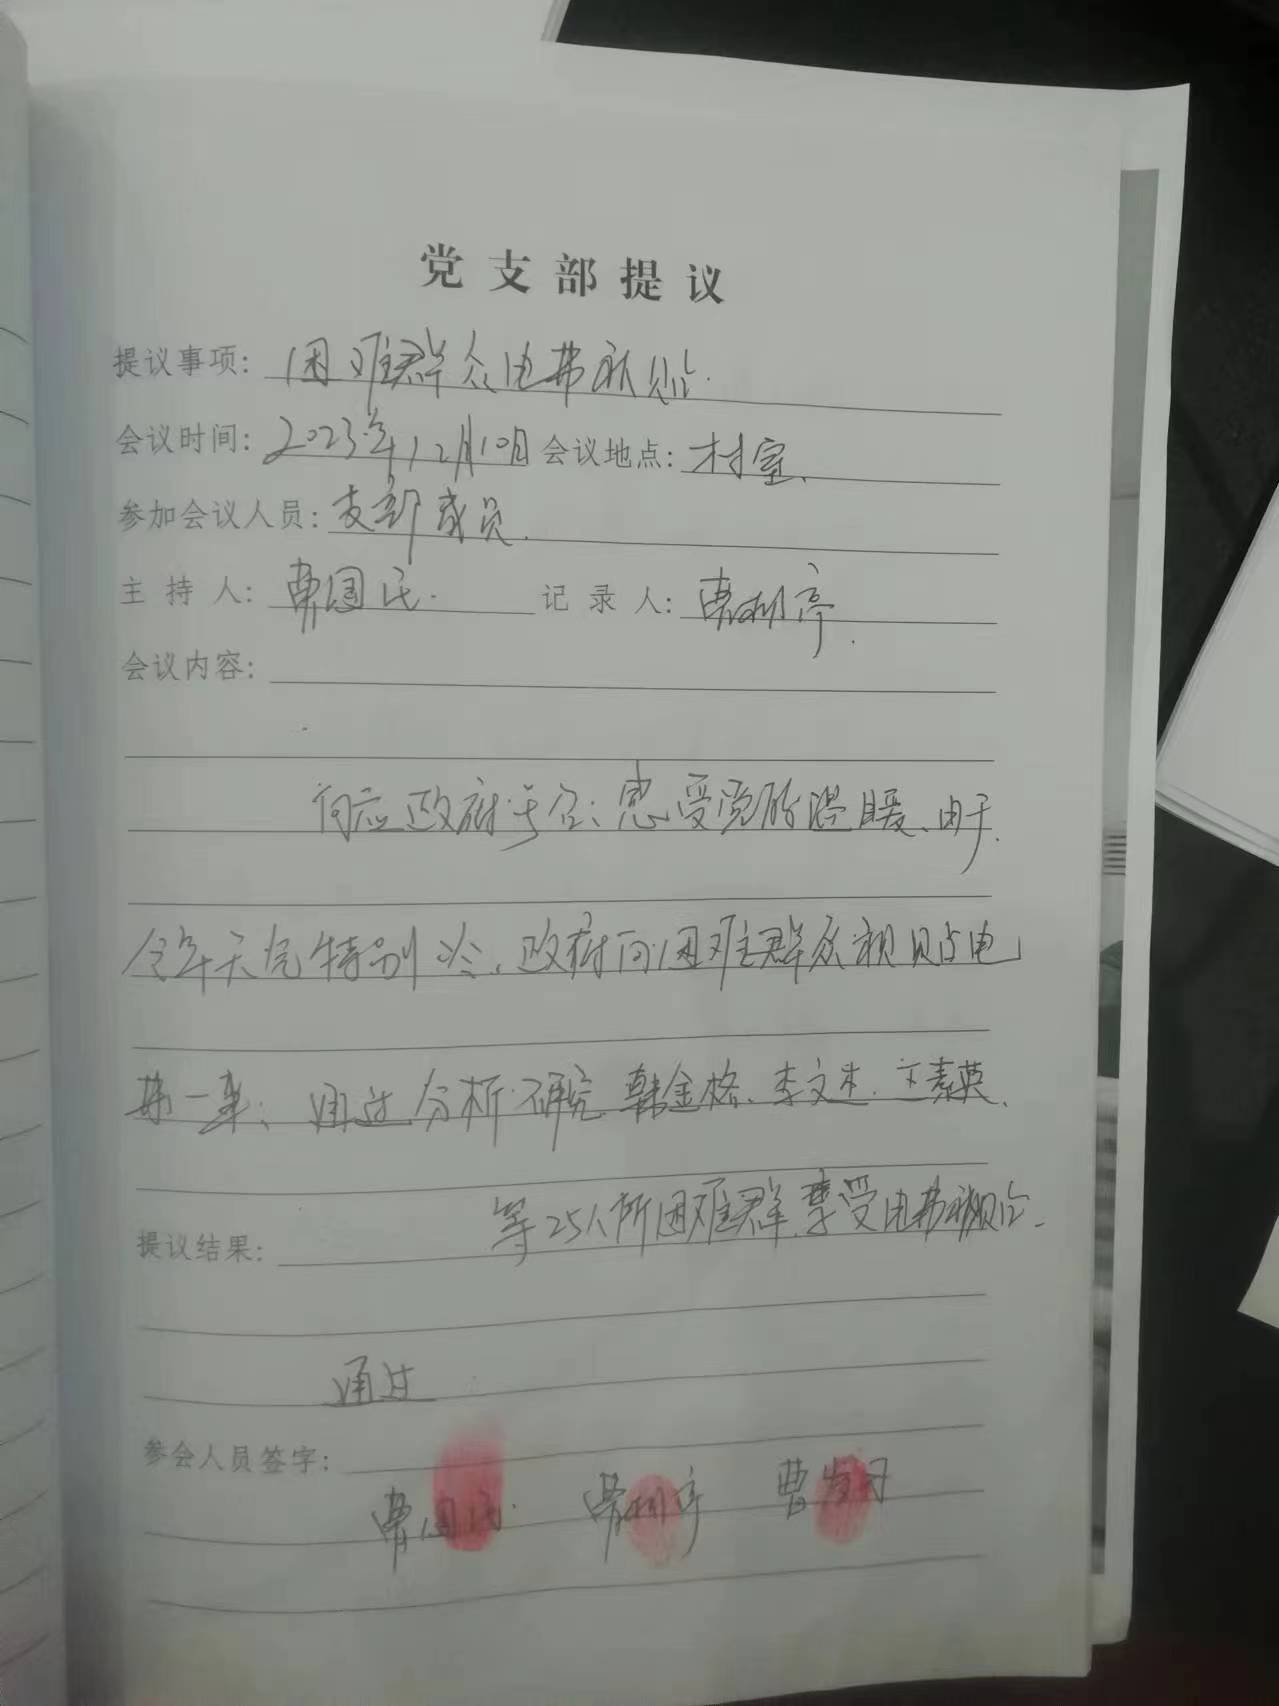 党支部提议
提议事项：困难群众电费补贴.
会议时间：2023年12月10日 会议地点：村室、
参加会议人员：支部成员.
主持人：曹国民. 记录人：曹利亭.
会议内容：
向应政府号召、感受党的温暖、由于
今年天气特别冷、政府向困难群众补贴电
费一事、通过分析研究、韩金格、李文杰、文素英、
等25人所困难群享受电费补贴.
提议结果：
通过
参会人员签字：
曹国民 曹利亭 曹